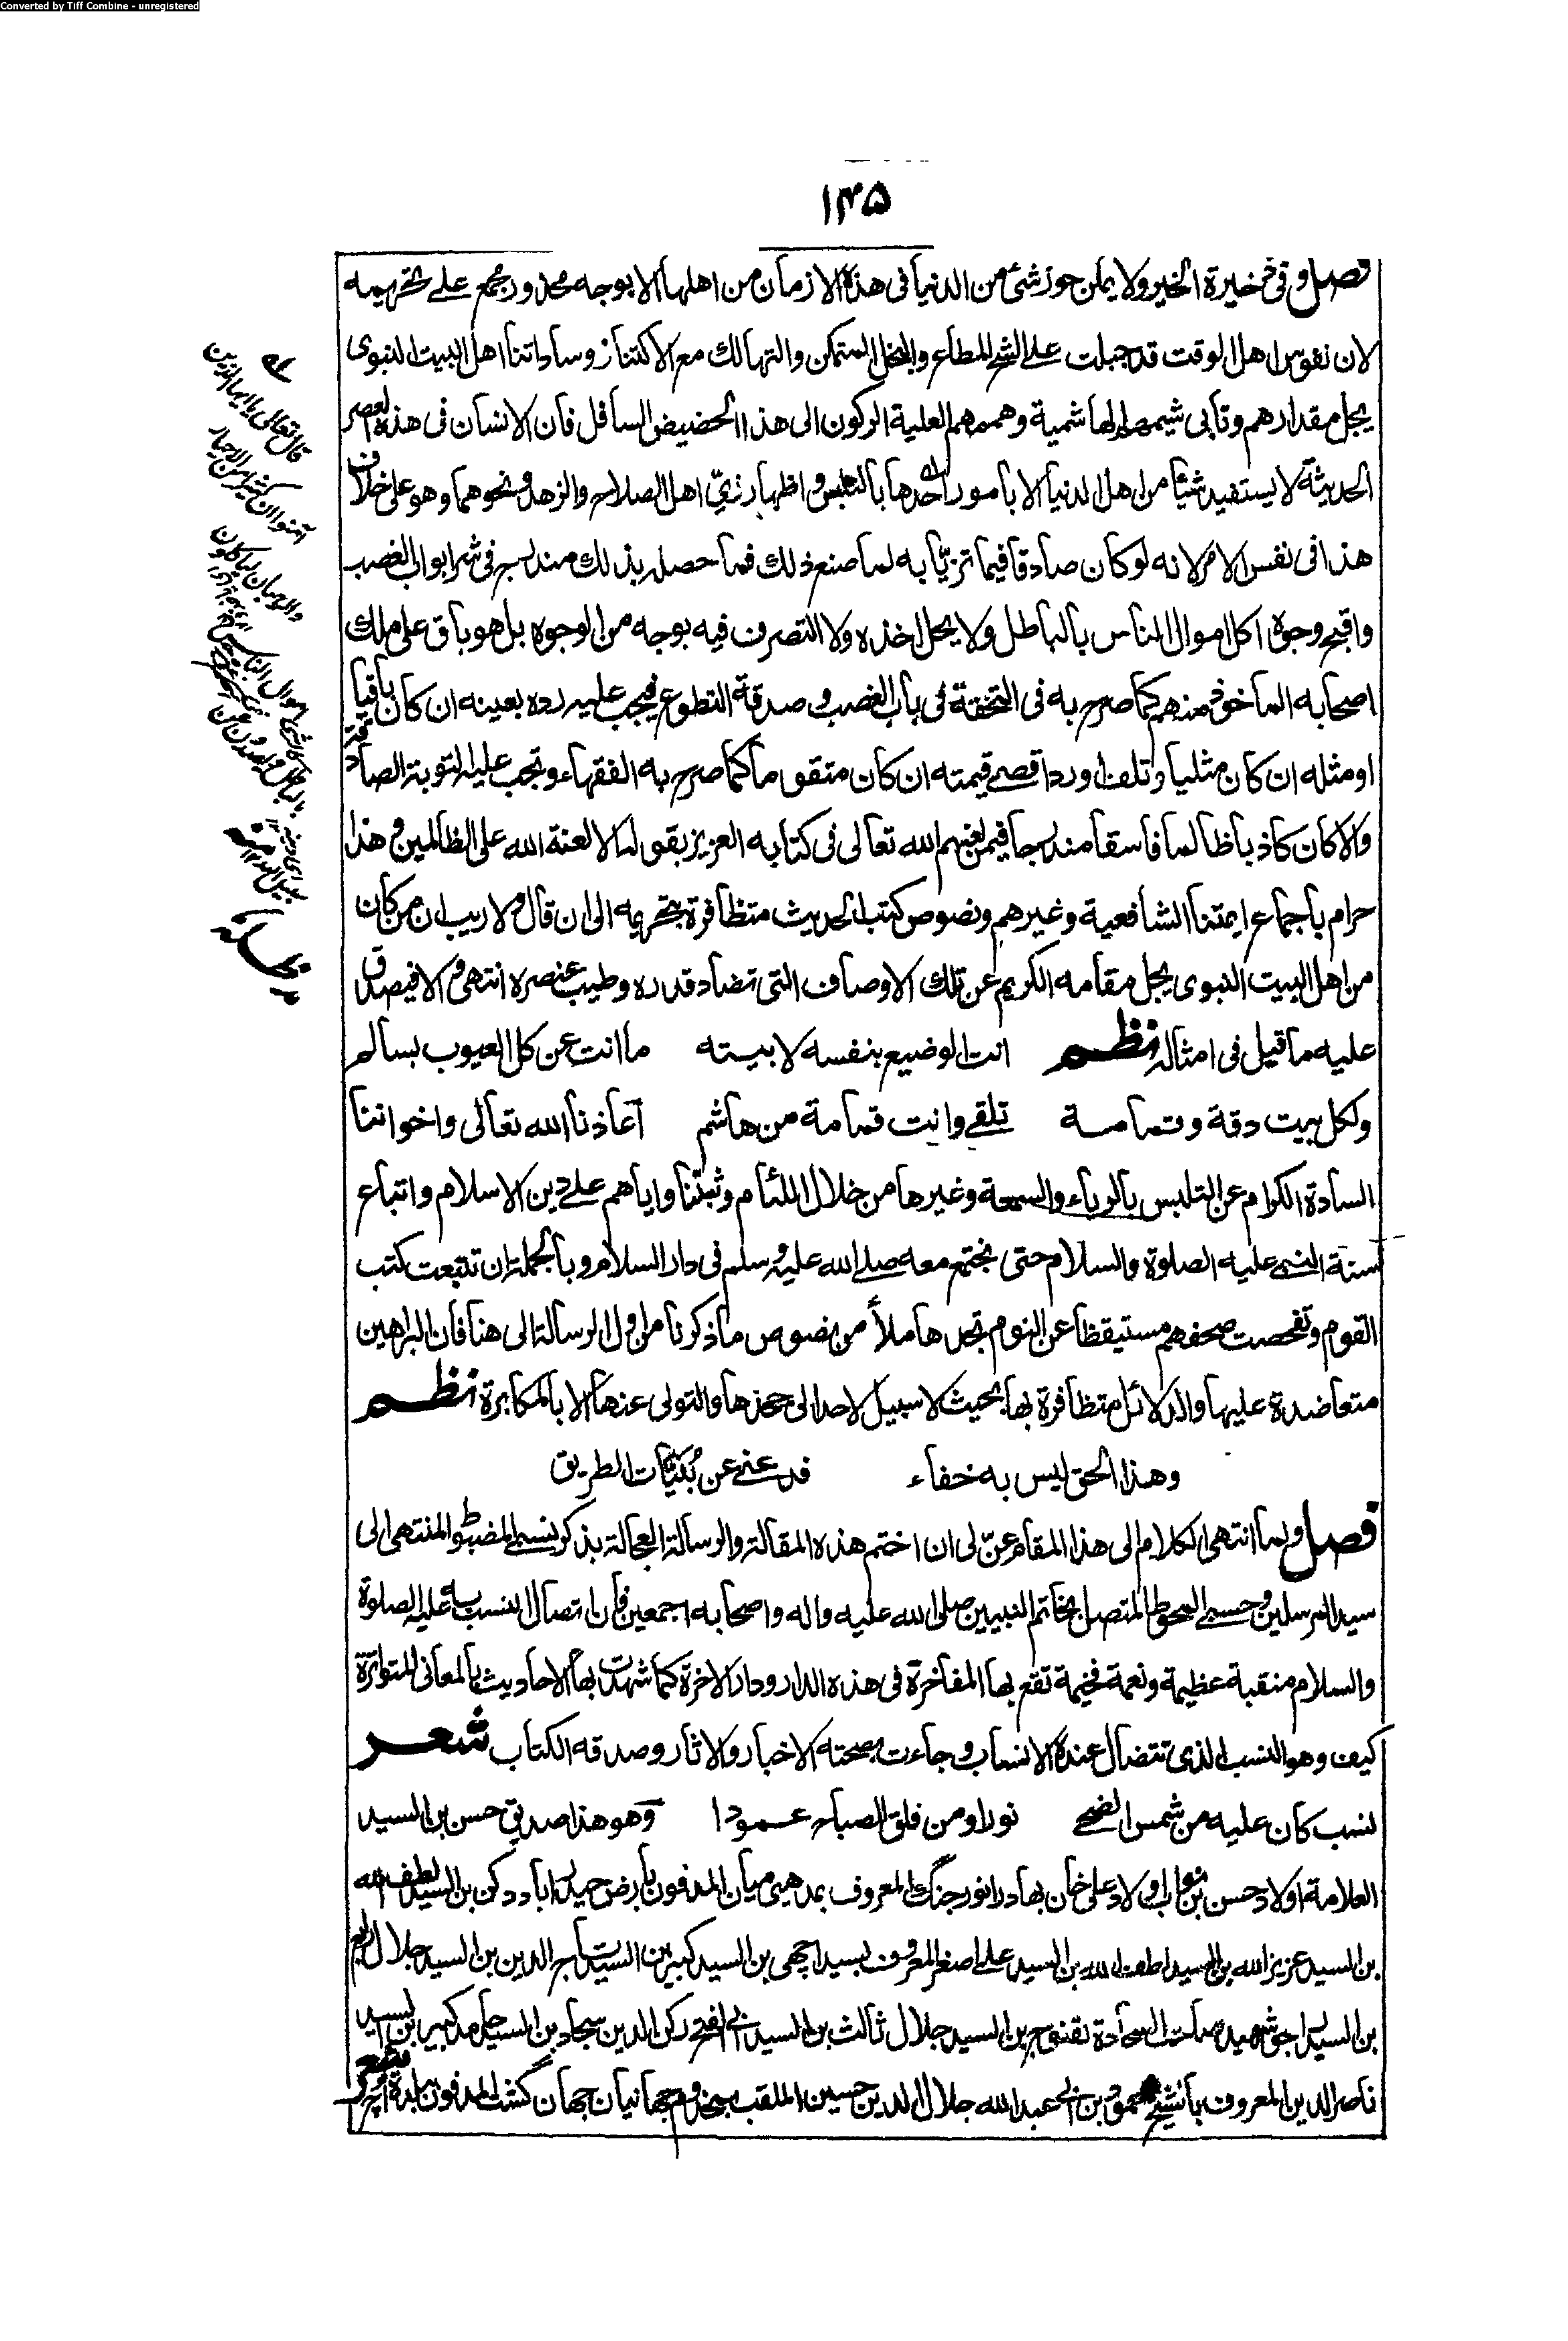 Converted by Tiff Combine - unregistered
١٣٥
فصل وفى ذخيرة الخير ولا يمكن حوز شئ من الدنيا فى هذه الازمان من اهلها الا بوجه محذور مجمع على تحريمه
لان نفوس اهل الوقت قد جبلت على الشح المطاع والبخل المتمكن والتهالك مع الاكتناز وساداتنا اهل البيت النبوى
يجل مقدارهم وتأبى شيمهم الهاشمية وهممهم العلية الركون الى هذا الحضيض السافل فان الانسان فى هذه العصر
الحديثة لا يستفيد شيئا من اهل الدنيا الا بامور احدها بالتلبس و اظهار زيّ اهل الصلاح والزهد ونحوهما وهو على خلاف
هذا فى نفس الامر لانه لو كان صادقا فيما تزيّا به لما صنع ذلك فما حصله بذلك مندرج فى شر ابواب الغصب
واقبح وجوه اكل اموال الناس بالباطل ولا يحل اخذه ولا التصرف فيه بوجه من الوجوه بل هو باق على ملك
اصحابه الماخوذ منهم كما صرح به فى التحفة فى باب الغصب و صدقة التطوع فيجب عليه رده بعينه ان كان باقيا
او مثله ان كان مثليا وتلف او رد اقصى قيمته ان كان متقوما كما صرح به الفقهاء وتجب عليه التوبة الصادقة
والا كان كاذبا ظالما فاسقا مندرجا فيمن لعنهم الله تعالى فى كتابه العزيز بقوله الا لعنة الله على الظالمين وهذا
حرام باجماع ايمتنا الشافعية وغيرهم ونصوص كتب الحديث متظافرة بتحريمه الى ان قال ولا ريب ان من كان
من اهل البيت النبوى يجل مقامه الكريم عن تلك الاوصاف التى تضاد قدره وطيب عنصره انتهى والا فيصدق
عليه ما قيل فى امثاله نظم انت الوضيع بنفسه لا بيته ما انت عن كل العيوب بسالم
ولكل بيت دقة وقمامة تلقى وانت قمامة من هاشم اعاذنا الله تعالى واخواننا
السادة الكرام عن التلبس بالرياء والسمعة وغيرها من خلال اللئام وثبتنا واياهم على دين الاسلام واتباع
سنة النبى عليه الصلوة والسلام حتى نجتمع معه صلى الله عليه وسلم فى دار السلام وبالجملة ان تتبعت كتب
القوم وتفحصت صحفهم مستيقظا عن النوم تجدها ملأ من نصوص ما ذكرنا من اول الرسالة الى هنا فان البراهين
متعاضدة عليها والدلائل متظافرة بها بحيث لا سبيل لاحد الى جحدها والتولى عنها الا بالمكابرة نظم
وهذا الحق ليس به خفاء فدعنى عن بُنَيّات الطريق
فصل ولما انتهى الكلام الى هذا المقام عنّ لى ان اختم هذه المقالة والرسالة العجالة بذكر نسبى المضبوط المنتهى الى
سيد المرسلين وحسبى المحوط المتصل بخاتم النبيين صلى الله عليه واله واصحابه اجمعين فان اتصال النسب به عليه الصلوة
والسلام منقبة عظيمة ونعمة فخيمة تقع بها المفاخرة فى هذه الدار ودار الاخرة كما شهدت بها الاحاديث بالمعانى المتواترة
كيف وهو النسب الذى تتضال عنده الانساب وجاءت بصحته الاخبار والاثار وصدقه الكتاب شعر
نسب كان عليه من شمس الضحى نورا ومن فلق الصباح عمودا وهو هذا صديق حسن بن السيد
العلامة اولاد حسن بن نواب اولاد على خان بهادر انور جنگ المعروف بمدهنى ميان المدفون بارض حيدراباد دكن بن السيد لطف الله
بن السيد عزيز الله بن السيد لطف الله بن السيد على اصغر المعروف بسيد اچهى بن السيد كبير بن السيد تاج الدين بن السيد جلال رابع
بن السيد راجو شهيد بن السيد جلال ثالث بن السيد ابى الفتح ركن الدين سجاد بن السيد حامد كبير بن السيد
ناصر الدين المعروف بالشيخ محمود بن ابى عبد الله جلال الدين حسين الملقب بمخدوم جهانيان جهان گشت المدفون ببلدة
قال تعالى يا ايها الذين
آمنوا ان كثيرا من الاحبار
والرهبان لياكلون
اموال الناس
بالباطل ويصدون عن
سبيل الله